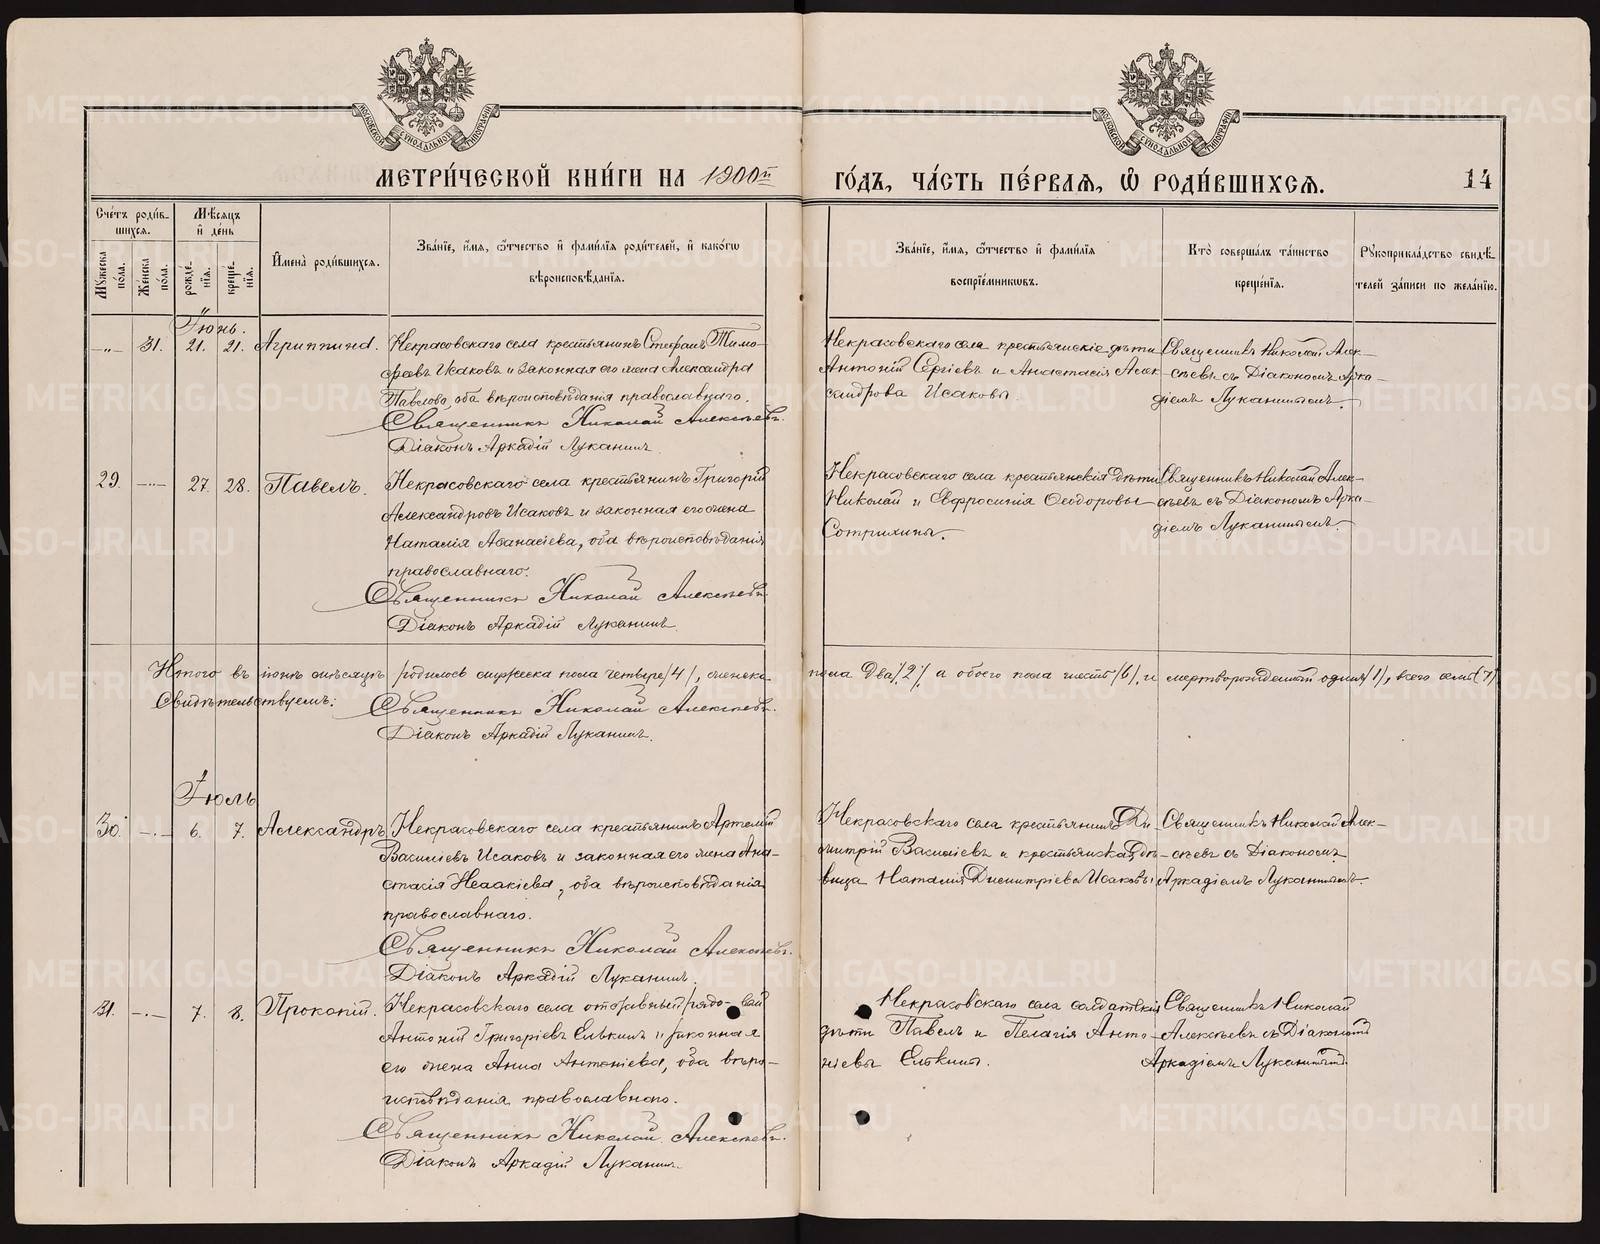 МОСКОВСКОЙ СѴНОДАЛЬНОЙ ТИПОГРАФІИ
МОСКОВСКОЙ СѴНОДАЛЬНОЙ ТИПОГРАФІИ
МЕТРИ́ЧЕСКОЙ КНИ́ГИ НА 1900й
ГО́ДЪ, ЧА́СТЬ ПЕ́РВАѦ, Ѡ҆ РОДИ́ВШИХСѦ.
14
Сче́тъ роди́в-
шихсѧ.
Мѣ́сѧцъ
и҆ де́нь
Мꙋ́жеска
по́ла.
Же́нска
по́ла.
рожде́-
нїѧ.
креще́-
нїѧ.
И҆мена̀ роди́вшихсѧ.
Зва́нїе, и҆́мѧ, ѻ҆́тчество и҆ фами́лїѧ роди́телей, и҆ како́гѡ
вѣроисповѣ́данїѧ.
Зва́нїе, и҆́мѧ, ѻ҆́тчество и҆ фами́лїѧ
воспрїе́мникѡвъ.
Кто̀ соверша́лъ та́инство
креще́нїѧ.
Рꙋкоприкла́дство свидѣ́-
телей за́писи по жела́нїю.
Іюнь.
—„— 31. 21. 21. Агриппина.
Некрасовскаго села крестьянинъ Стефанъ Тимо-
феевъ Исаковъ и законная его жена Александра
Павлова, оба вѣроисповѣданія православнаго.
Священникъ Николай Алексѣевъ.
Діаконъ Аркадій Луканинъ.
Некрасовскаго села крестьянскіе дѣти
Антоній Сергіевъ и Анастасія Алек-
сандрова Исаковы.
Священникъ Николай Алек-
сѣевъ съ Діакономъ Арка-
діемъ Луканинымъ.
29. —„— 27. 28. Павелъ.
Некрасовскаго села крестьянинъ Григорій
Александровъ Исаковъ и законная его жена
Наталія Аѳанасіева, оба вѣроисповѣданія
православнаго.
Священникъ Николай Алексѣевъ
Діаконъ Аркадій Луканинъ.
Некрасовскаго села крестьянскія дѣти
Николай и Евфросинія Ѳеодоровы
Сотрихины.
Священникъ Николай Алек-
сѣевъ съ Діакономъ Арка-
діемъ Луканинымъ.
Итого въ іюнѣ мѣсяцѣ родилось мужеска пола четверо /4/, женска
пола два /2/, а обоего пола шесть /6/, и мертворожденный одинъ /1/, всего семь /7/
Свидѣтельствуемъ: Священникъ Николай Алексѣевъ.
Діаконъ Аркадій Луканинъ.
Іюль
30. —„— 6. 7. Александръ
Некрасовскаго села крестьянинъ Артемій
Василіевъ Исаковъ и законная его жена Ана-
стасія Исаакіева, оба вѣроисповѣданія
православнаго.
Священникъ Николай Алексѣевъ.
Діаконъ Аркадій Луканинъ.
Некрасовскаго села крестьянинъ Ди-
митрій Василіевъ и крестьянская дѣ-
вица Наталія Димитріева Исаковы
Священникъ Николай Алек-
сѣевъ съ Діакономъ
Аркадіемъ Луканинымъ.
31. —„— 7. 8. Прокопій.
Некрасовскаго села отставный рядовый
Антоній Григоріевъ Елькинъ и законная
его жена Анна Антоніева, оба вѣро-
исповѣданія православнаго.
Священникъ Николай Алексѣевъ.
Діаконъ Аркадій Луканинъ.
Некрасовскаго села солдатскія
дѣти Павелъ и Пелагія Анто-
ніевы Елькины.
Священникъ Николай
Алексѣевъ съ Діакономъ
Аркадіемъ Луканинымъ.
METRIKI.GASO-URAL.RU